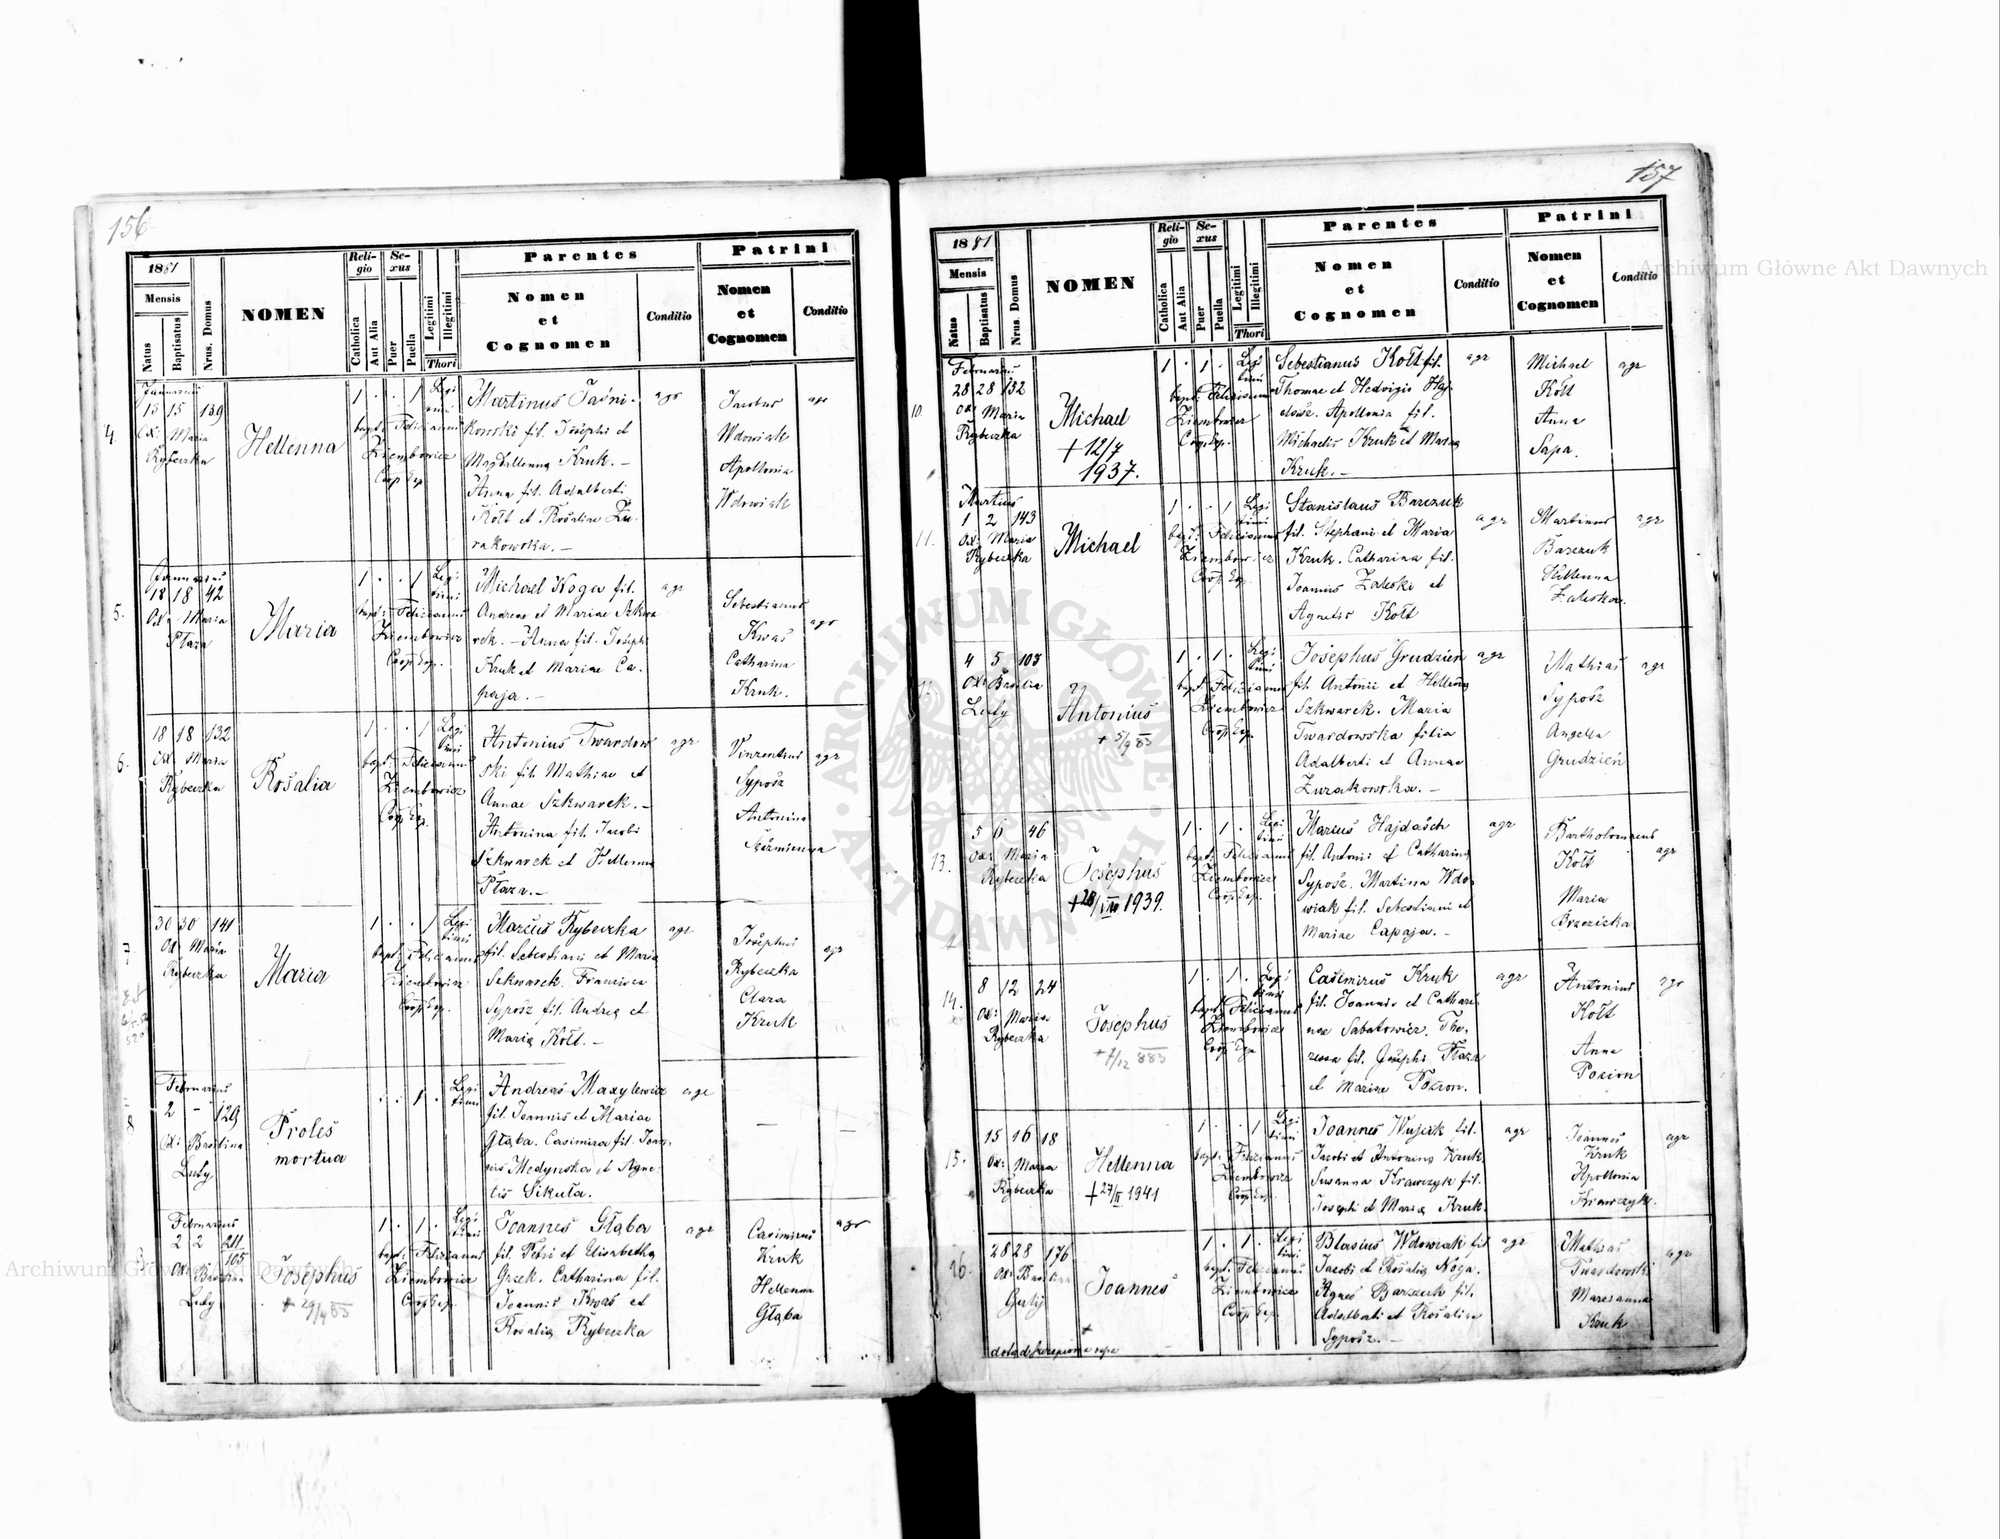 156
1881
Mensis
Natus
Baptisatus
Nrus. Domus
NOMEN
Reli-
gio
Catholica
Aut Alia
Se-
xus
Puer
Puella
Legitimi
Illegitimi
Thori
Parentes
Nomen
et
Cognomen
Conditio
Patrini
Nomen
et
Cognomen
Conditio
4.
Januarius
15 15 139
Od: Maria
Rybeczka
Hellenna
1 . . 1 Legi
timi
bapt: Felicianus
Ziembowicz
Coop. Exp.
Martinus Jaśni-
kowski fil. Josephi et
Magdillenna Kruk. -
Anna fil. Adalberti
Kołt et Rosaliae Żu-
rakowska. -
agr
Jacobus
Wdowiak
Apollonia
Wdowiak
agr
5.
Januarius
18 18 42
Od: Maria
Płaza
Maria
1 . . 1 Legi
timi
bapt: Felicianus
Ziembowicz
Coop. Exp.
Michael Noga fil.
Andreae et Mariae Szkwa
rek. - Anna fil. Josephi
Kruk et Mariae Ca-
paja. -
agr
Sebestianus
Kwaś
Catharina
Kruk.
agr
6.
18 18 132
Od: Maria
Rybeczka
Rosalia
1 . . 1 Legi
timi
bapt: Felicianus
Ziembowicz
Coop. Exp.
Antonius Twardow
ski fil. Mathiae et
Annae Szkwarek. -
Antonina fil. Jacobi
Szkwarek et Hellenna
Płaza. -
agr
Vinzentius
Syposz
Antonina
agr
7.
30 30 141
Od: Maria
Rybeczka
Maria
1 . . 1 Legi
timi
bapt: Felicianus
Ziembowicz
Coop. Exp.
Marcus Rybeczka
fil. Sebestiani et Maria
Szkwarek. Francisca
Syposz fil. Andrea et
Maria Kołt. -
agr
Josephus
Rybeczka
Clara
Kruk
agr
8
Februarius
2 - 129
Od: Basilina
Luty
Proles
mortua
. . 1 . Legi
timi
Andreas Maxylewicz
fil. Joannis et Mariae
Głąba. Casimira fil. Joan-
nis Medynska et Agne-
tis Sikuła.
agr
— —
Februarius
2 2 211
105
Od: Basilina
Luty
Josephus
+ 29/4 85
1 . 1 . Legi
timi
bapt: Felicianus
Ziembowicz
Coop. Exp.
Joannes Głąba
fil. Petri et Elisabetha
Grzek. Catharina fil.
Joannis Kwaś et
Rosalia Rybeczka
agr
Casimirus
Kruk
Hellenna
Głąba
agr
157
1881
Mensis
Natus
Baptisatus
Nrus. Domus
NOMEN
Reli-
gio
Catholica
Aut Alia
Se-
xus
Puer
Puella
Legitimi
Illegitimi
Thori
Parentes
Nomen
et
Cognomen
Conditio
Patrini
Nomen
et
Cognomen
Conditio
10.
Februarius
28 28 132
Od: Maria
Rybeczka
Michael
+ 12/7
1937.
1 . 1 . Legi
timi
bapt: Felicianus
Ziembowicz
Coop. Exp.
Sebestianus Kołt fil.
Thomae et Hedvigis Haj-
dasz. Apollonia fil.
Michaelis Kruk et Maria
Kruk. -
agr
Michael
Kołt
Anna
Sapa.
agr
11.
Martius
1 2 143
Od: Maria
Rybeczka
Michael
1 . . 1 Legi
timi
bapt: Felicianus
Ziembowicz
Coop. Exp.
Stanislaus Barczuk
fil. Stephani et Maria
Kruk. Catharina fil.
Joannis Zaleski et
Agnetis Kołt
agr
Martinus
Barczuk
Hellenna
Zaleska.
agr
12.
4 5 103
Od: Basilia
Luty
Antonius
+ 5/9 85
1 . 1 . Legi
timi
bapt: Felicianus
Ziembowicz
Coop. Exp.
Josephus Grudzień
fil. Antonii et Hellena
Szkwarek. Maria
Twardowska filia
Adalberti et Annae
Żurakowska. -
agr
Mathias
Syposz
Angella
Grudzień
agr
13.
5 6 46
Od: Maria
Rybeczka
Josephus
+ 28/VIII 1939.
1 . 1 . Legi
timi
bapt: Felicianus
Ziembowicz
Coop. Exp.
Marcus Hajdasch
fil. Antonii et Catharina
Syposz. Martina Wdo-
wiak fil. Sebestiani et
Mariae Capaja. -
agr
Bartholomaeus
Kołt
Maria
Brzezicka
agr
14.
8 12 24
Od: Maria
Rybeczka
Josephus
+ 7/12 883
1 . 1 . Legi
timi
bapt: Felicianus
Ziembowicz
Coop. Exp.
Casimirus Kruk
fil. Joannis et Cathari-
nae Sabatowicz. The-
ressa fil. Josephi Płaza
et Mariae Pozion.
agr
Antonius
Kołt
Anna
Pozion
agr
15.
15 16 18
Od: Maria
Rybeczka
Hellenna
+ 27/II 1941
1 . . 1 Legi
timi
bapt: Felicianus
Ziembowicz
Coop. Exp.
Joannes Wujcik fil.
Jacobi et Antonina Kruk.
Susanna Krawczyk fil.
Josephi et Maria Kruk.
agr
Joannes
Kruk
Apollonia
Krawczyk.
agr
16.
28 28 176
Od: Basilina
Luty
Joannes
1 . 1 . Legi
timi
bapt: Felicianus
Ziembowicz
Coop. Exp.
Blasius Wdowiak fil.
Jacobi et Rosalia Noga.
Agnes Barszuk fil.
Adalberti et Rosaliae
Syposz. -
agr
Mathias
Twardowski
Marcianna
Kruk
agr
Archiwum Główne Akt Dawnych
Archiwum Główne Akt Dawnych
ARCHIWUM GŁÓWNE AKT DAWNYCH